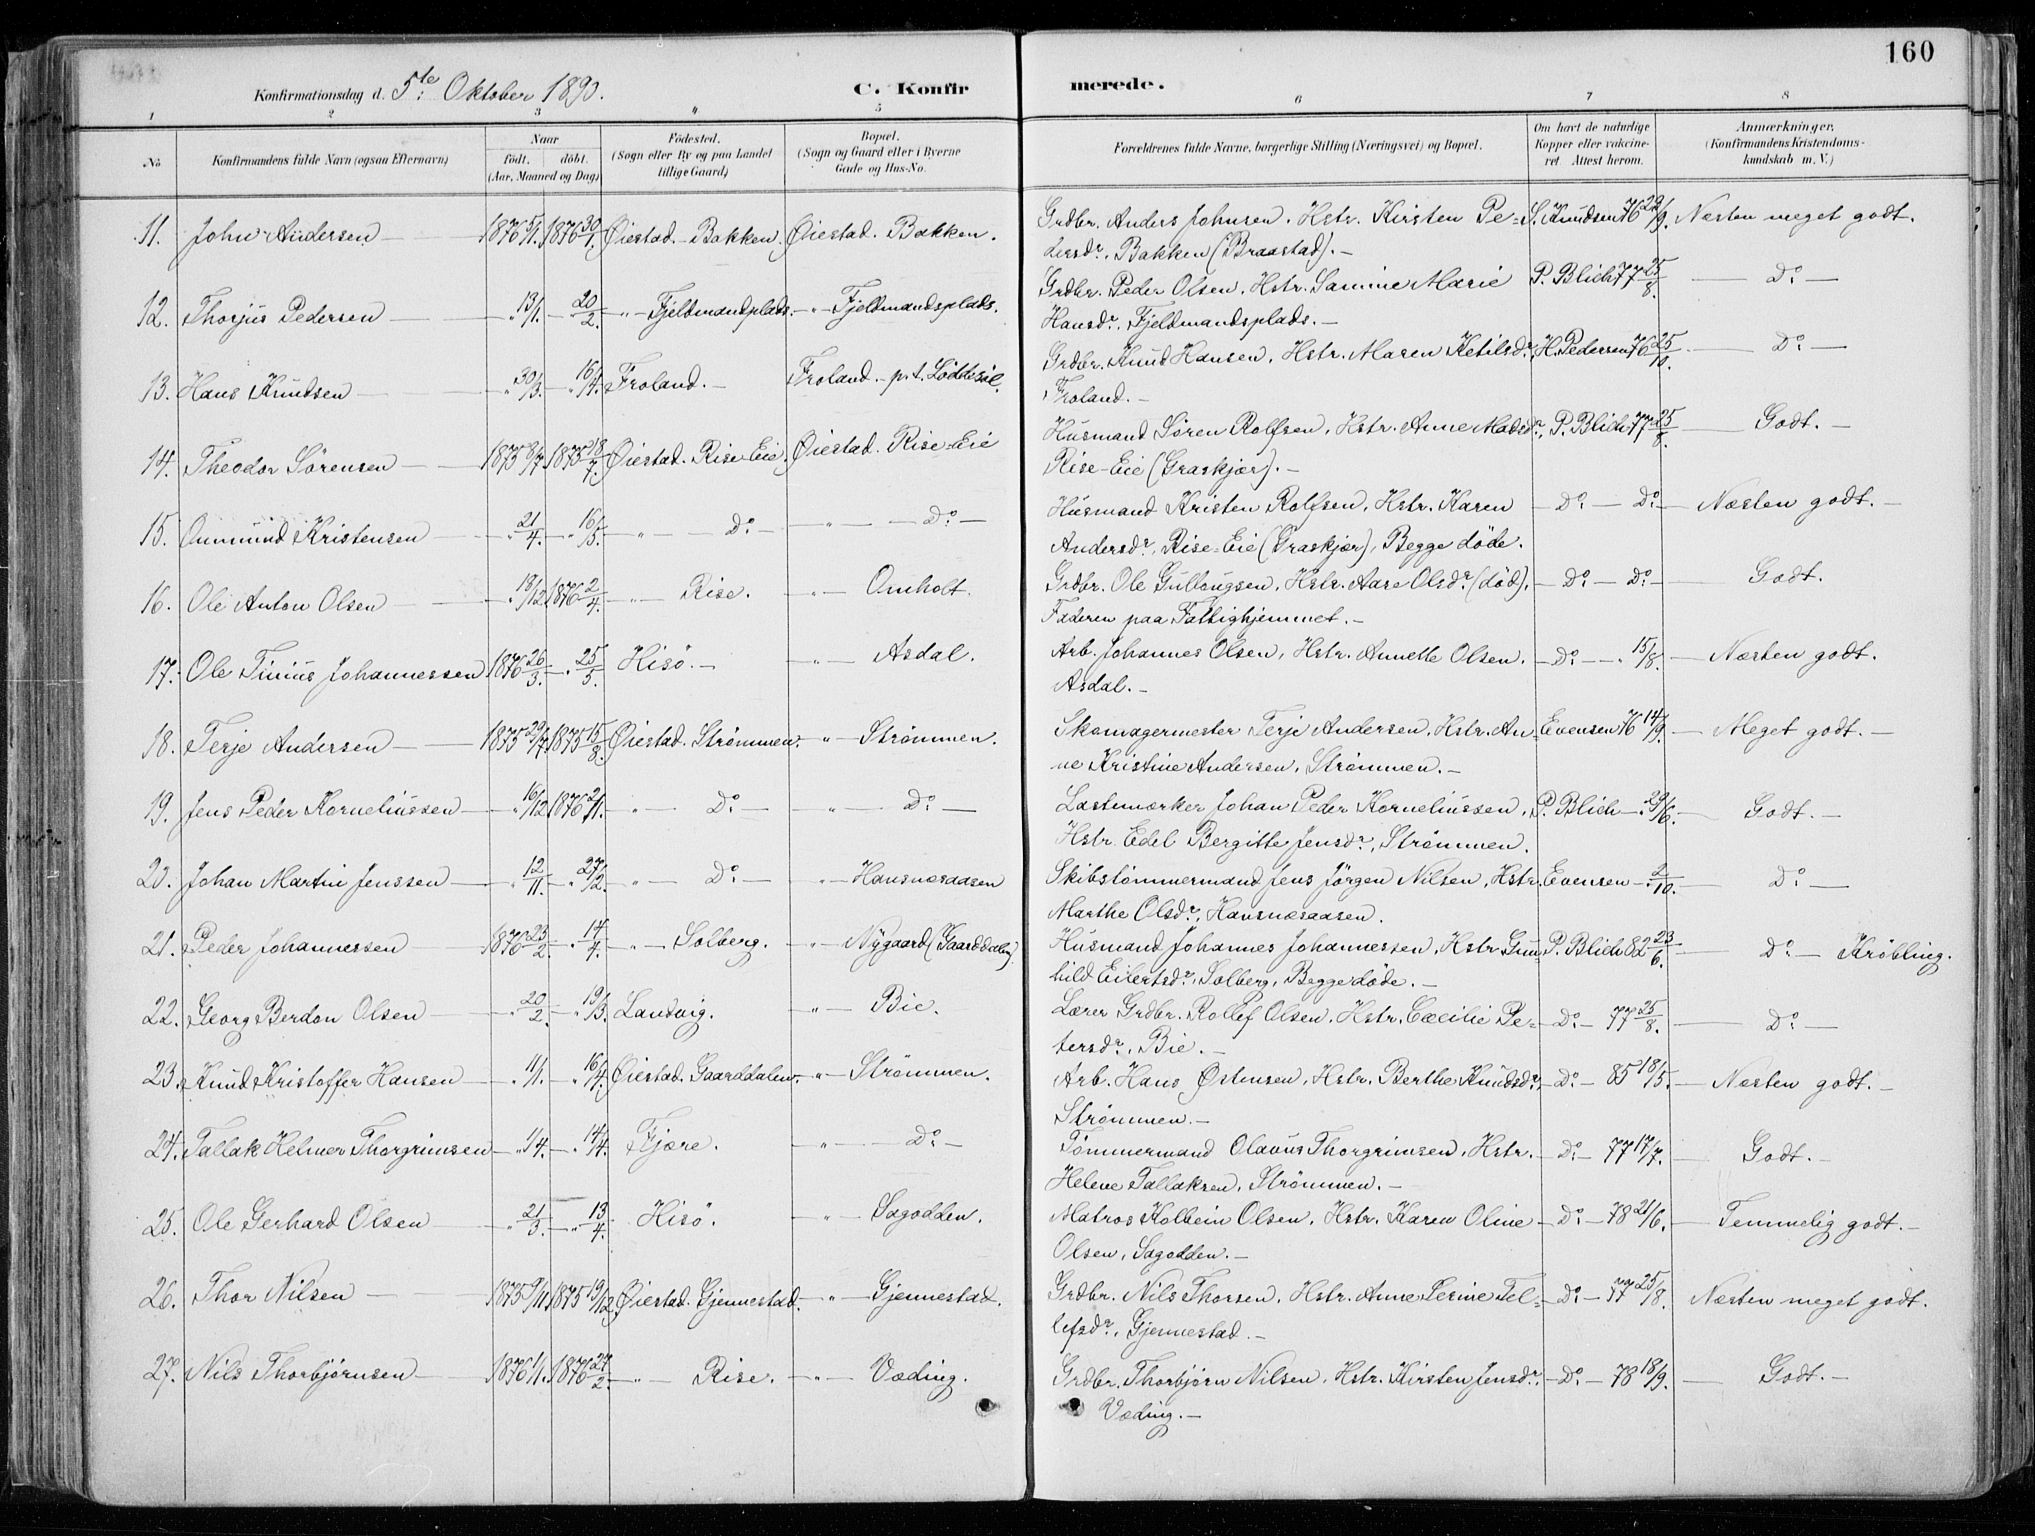 160
Konfirmationsdag d. 5te Oktober 1890. C. Konfirmerede.
1 2 3 „ 5 6 7 8
No Konfirmandens fulde Navn (ogsaa Efternavn) Naar født. døbt. (Aar, Maaned og Dag) Fødested. (Sogn eller By og paa Landet tillige Gaard) Bopæl. (Sogn og Gaard eller i Byerne Gade og Hus-No. Forældrenes fulde Navne, borgerlige Stilling (Næringsvei) og Bopæl. Om havt de naturlige Kopper eller vakcineret. Attest herom. Anmærkninger. (Konfirmandens Kristendomskundskab m. V.)
11. John Andersen — 1876 5/1. 1876 30/1. Øiestad. - Bakken. Øiestad. Bakken. Grdbr. Anders Johnsen. Hstr. Kirsten Pe= S. Knudsen 76 29/9. Næsten meget godt.
dersdr., Bakken (Braastad). —
12. Thorjus Pedersen — „ 13/1. — „ 20/2. — „ — Fjeldmandsplads. — „ — Fjeldmandsplads. Grdbr. Peder Olsen. Hstr. Samine Marie P. Blich 77 25/8. — Do. —
Hansdr., Fjeldmandsplads. —
13. Hans Knudsen — „ 30/3. — „ 16/4. Froland. — Froland. - p. t. Løddesøl. Grdbr. Knud Hansen, Hstr. Maren Ketilsdr., H. Pedersen 76 25/10. — Do. —
Froland. —
14. Theodor Sørensen — 1875 8/7. 1875 18/7. Øiestad. Rise-Eie. Øiestad. Rise-Eie Husmand Søren Rolfsen, Hstr. Anne Madsdr., P. Blich 77 25/8. — Godt. —
Rise-Eie (Graskjær). —
15. Ommund Kristensen — „ 21/4. — „ 16/5. — „ — Do. — „ — Do. — Husmand Kristen Rolfsen, Hstr. Karen — Do. — Do. — Næsten godt. —
Andersdr., Rise-Eie (Graskjær), Begge døde.
16. Ole Anton Olsen — „ 18/12. 1876 2/4. — „ — Rise. — „ — Omholt. Grdbr. Ole Gullougsen, Hstr. Aase Olsdr. (død). — Do. — Do. — Godt.
Faderen paa Fattighjemmet. —
17. Ole Tinius Johannessen 1876 26/3. — „ 25/5. Hisø. — — „ — Asdal. Arb. Johannes Olsen, Hstr. Annette Olsen. — Do. — „ 15/8. — Næsten godt.
Asdal. —
18. Terje Andersen — 1875 29/7. 1875 15/8. Øiestad. Strømmen. — „ — Strømmen. Skomagermester Terje Andersen. Hstr. An= Evensen 76 14/9. — Meget godt. —
ne Kristine Andersen, Strømmen. —
19. Jens Peder Korneliussen — „ 16/12. 1876 2/1. — „ — Do. — — „ — Do. — Lastemærker Johan Peder Korneliussen, P. Blich — „ 29/6. — Godt. —
Hstr. Edel Bergitte Jensdr., Strømmen.
20. Johan Martin Jenssen — „ 12/11. — „ 27/2. — „ — Do. — — „ — Havsnæsaasen Skibstømmermand Jens Jørgen Nilsen, Hstr. Evensen — „ 2/10. — Do. —
Marthe Olsdr., Havsnæsaasen.
21. Peder Johannessen 1876 23/2. — „ 14/4. — „ — Solberg. — „ — Nygaard (Gaarddalen). Husmand Johannes Johannessen, Hstr. Gun= P. Blich 82 23/6. — Do. — Krøbling.
hild Eilertsdr., Solberg, Begge døde. —
22. Georg Berdon Olsen — „ 20/2. — „ 19/3. Landvig. — „ — Bie. Lærer Grdbr. Rollef Olsen. Hstr. Cæcilie Pe= — Do. — 77 25/8. — Do. —
tersdr., Bie. —
23. Knud Kristoffer Hansen — „ 1/1. — „ 16/4. Øiestad. Gaarddalen. — „ — Strømmen. Arb. Hans Østensen, Hstr. Berthe Knudsdr., — Do. — 85 18/5. — Næsten godt. —
Strømmen. —
24. Tallak Helmer Thorgrimsen — „ 1/4. — „ 14/4. Fjære. — „ — Do. — Tømmermand Olavus Thorgrimsen, Hstr. — Do. — 77 17/7. — Godt. —
Helene Tallaksen, Strømmen. —
25. Ole Gerhard Olsen — „ 21/3. — „ 13/4. Hisø. — „ — Sagodden. Matros Kolbein Olsen. Hstr. Karen Oline — Do. — 78 21/6. — Temmelig godt. —
Olsen, Sagodden. —
26. Thor Nilsen — 1875 9/11. 1875 19/12. Øiestad. Gjennestad. — „ — Gjennestad. Grdbr. Nils Thorsen, Hstr. Anne Serine Tel= — Do. — 77 25/8. Næsten meget godt.
lefsdr., Gjennestad. —
27. Nils Thorbjørnsen — 1876 1/1. 1876 27/2. — „ — Rise. — „ — Væding. Grdbr. Thorbjørn Nilsen, Hstr. Kirsten Jensdr., — Do. — 78 18/9. — Godt. —
Væding. —